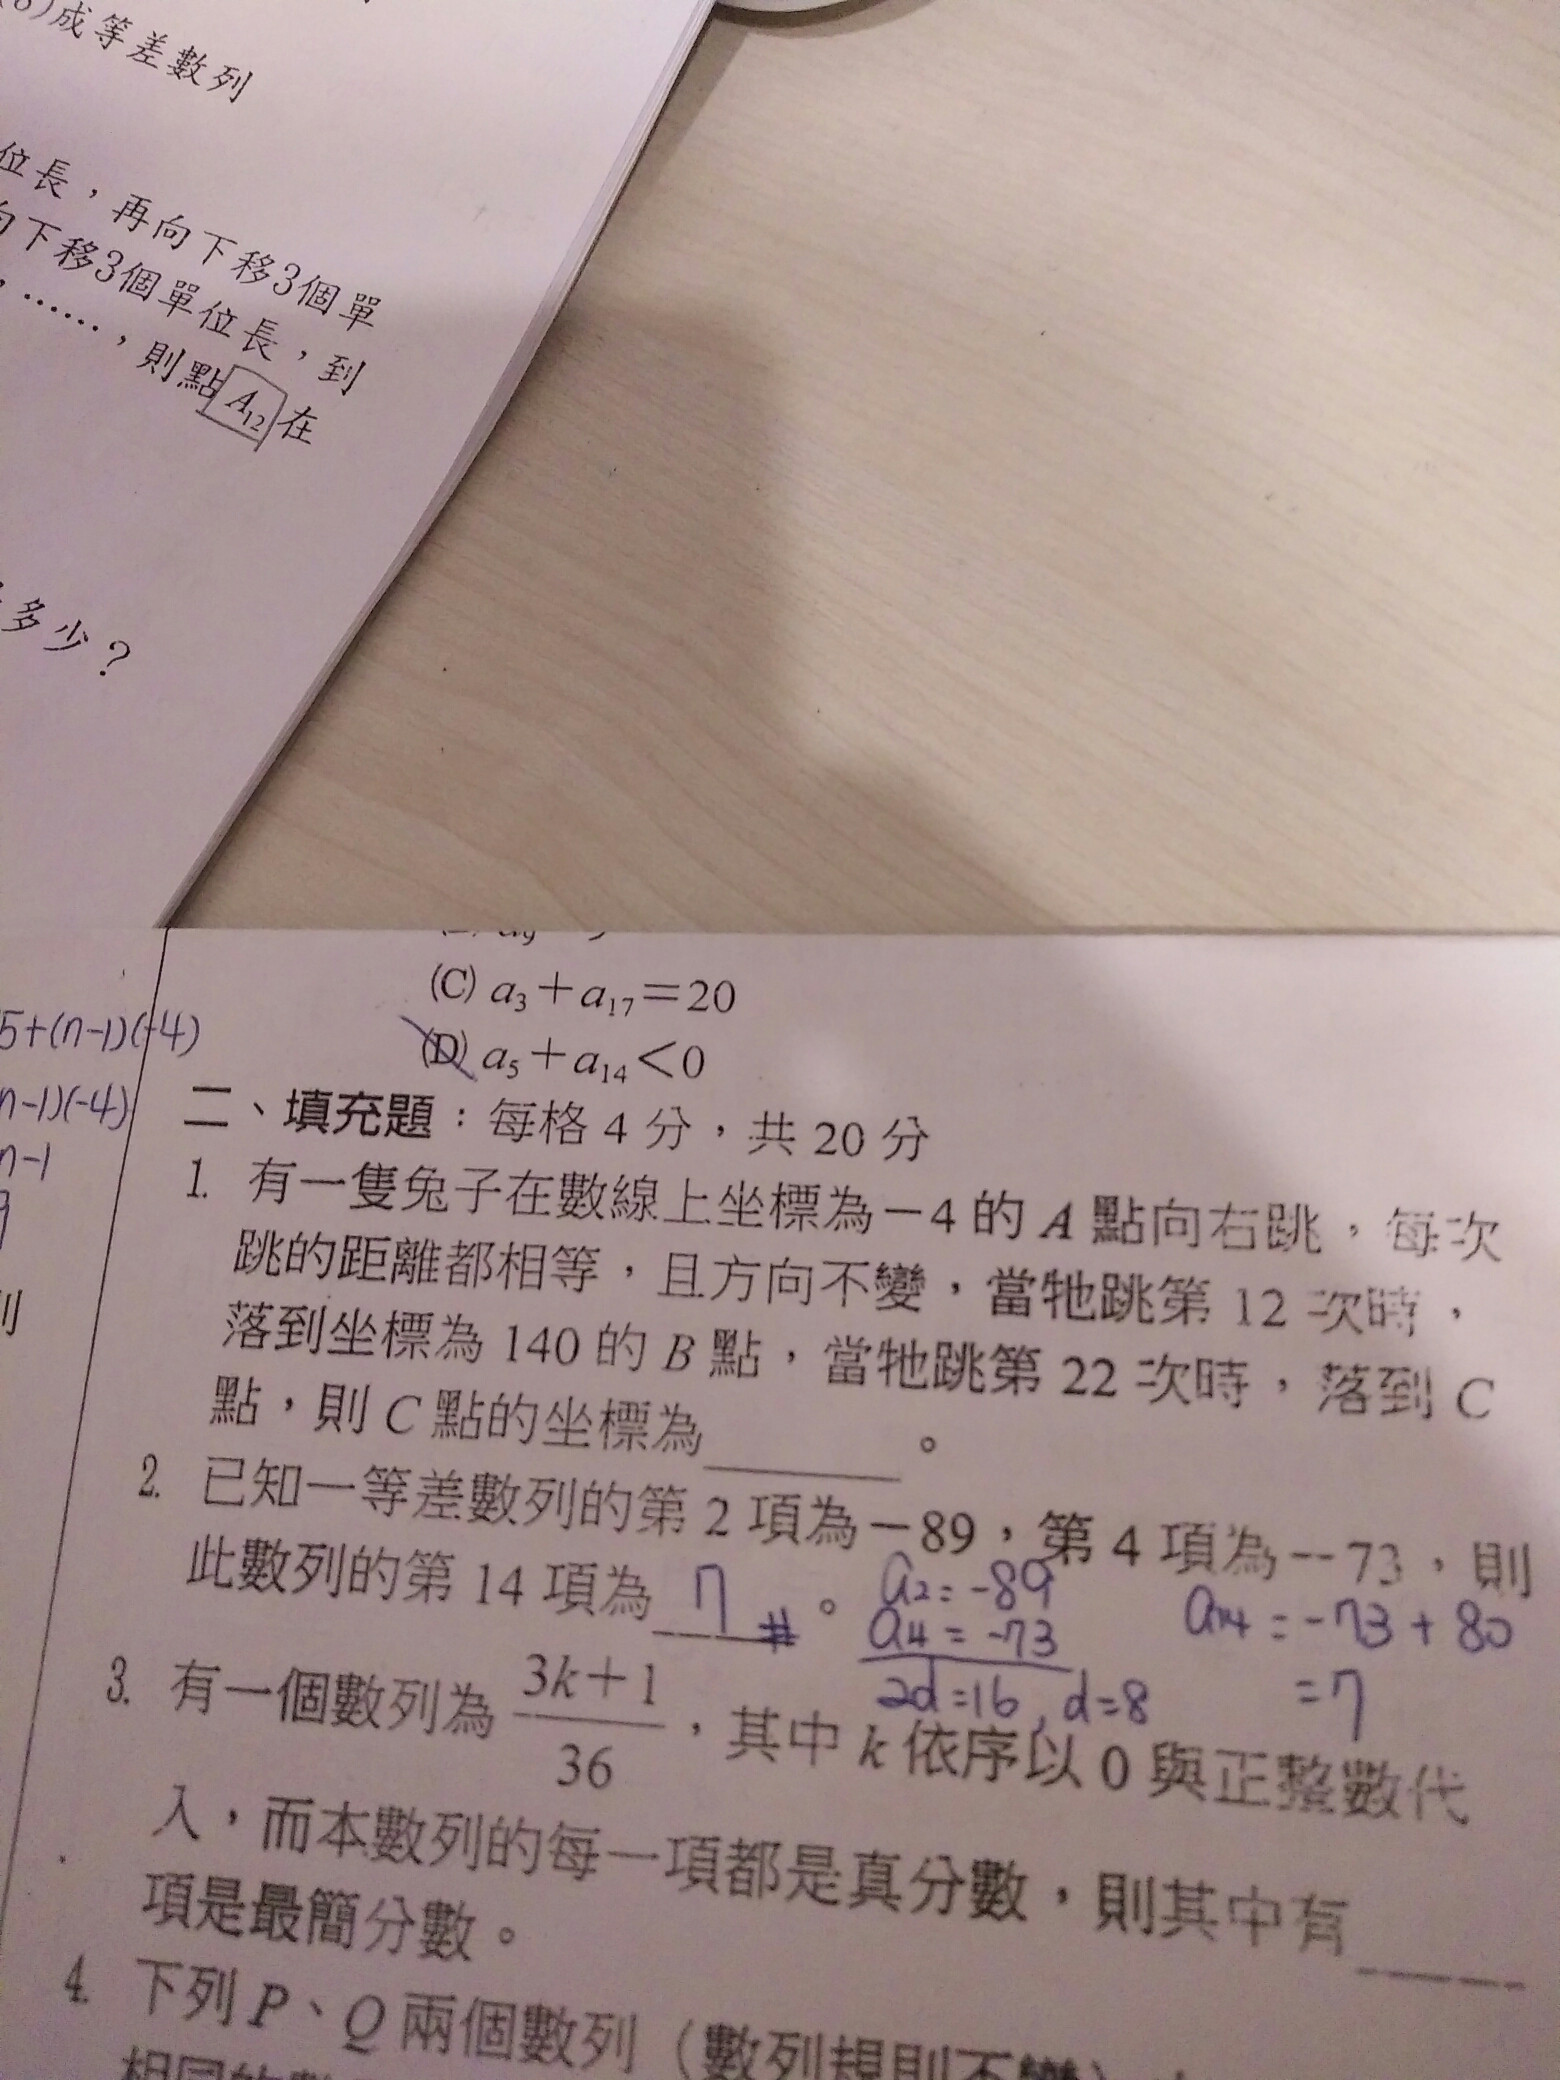 成等差數列
位長，再向下移3個單
向下移3個單位長，到
，……，則點A₁₂在
多少？
(C) a₃＋a₁₇＝20
(D) a₅＋a₁₄＜0
5+(n-1)(-4)
n-1)(-4)
n-1
二、填充題：每格 4 分，共 20 分
1. 有一隻兔子在數線上坐標為－4 的 A 點向右跳，每次
跳的距離都相等，且方向不變，當牠跳第 12 次時，
落到坐標為 140 的 B 點，當牠跳第 22 次時，落到 C
點，則 C 點的坐標為______。
2. 已知一等差數列的第 2 項為－89，第 4 項為－73，則
此數列的第 14 項為 7 #。
a₂=-89
a₄=-73
2d=16, d=8
a₁₄=-73+80
=7
3. 有一個數列為 (3k＋1)/36，其中 k 依序以 0 與正整數代
入，而本數列的每一項都是真分數，則其中有______
項是最簡分數。
4. 下列 P、Q 兩個數列（數列規則不變）
相同的數